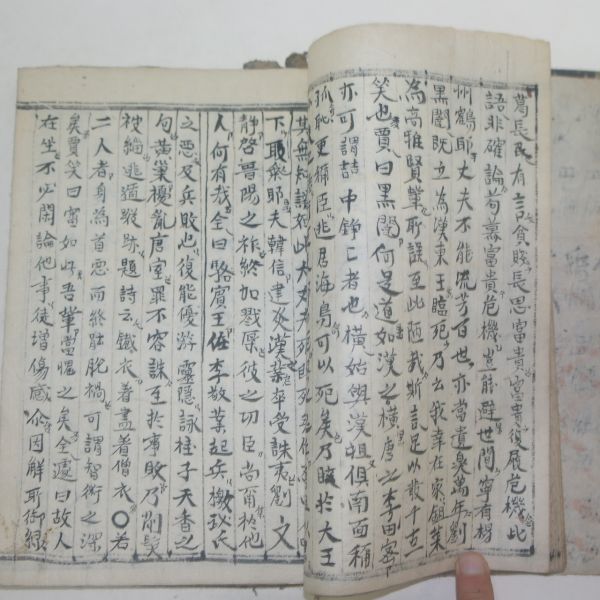 葛長民有言貧賤長思富貴富貴復履危機此
語非確論苟慕富貴危機豈能避世間寧有揚
州鶴耶丈夫不能流芳百世亦當遺臭萬年劉
黑闥既立為漢東王臨死乃云我幸在家鉏菜
為高雅賢輩所誤至此陋哉斯言足以發千古一
笑也賈曰黑闥何足道如漢之橫唐之李密
亦可謂 中錚〻者也橫始與漢祖俱南面稱
孤恥更稱臣逃居海島可以死矣乃眩於大王
其無知識如此大丈夫死即死
下取氣耶夫韓信建炎漢業卒受誅夷劉文
静啓晉陽之祚終加戮辱彼之功臣尚爾於他
人何有哉全曰駱賓王佐李敬業起兵檄武氏
之惡及兵敗也復能優游靈隱詠桂子天香之
句黃巢擾亂唐室罪不容誅至於事敗乃削髮
被緇逃遁蹤跡題詩云鐵衣着盡着僧衣〇若
二人者身為首惡而終能脫禍可謂智術之深
矣賈笑曰審如此吾輩當愧之矣全遽曰故人
在坐不必閑論他事徒增傷感尒因解所御綠